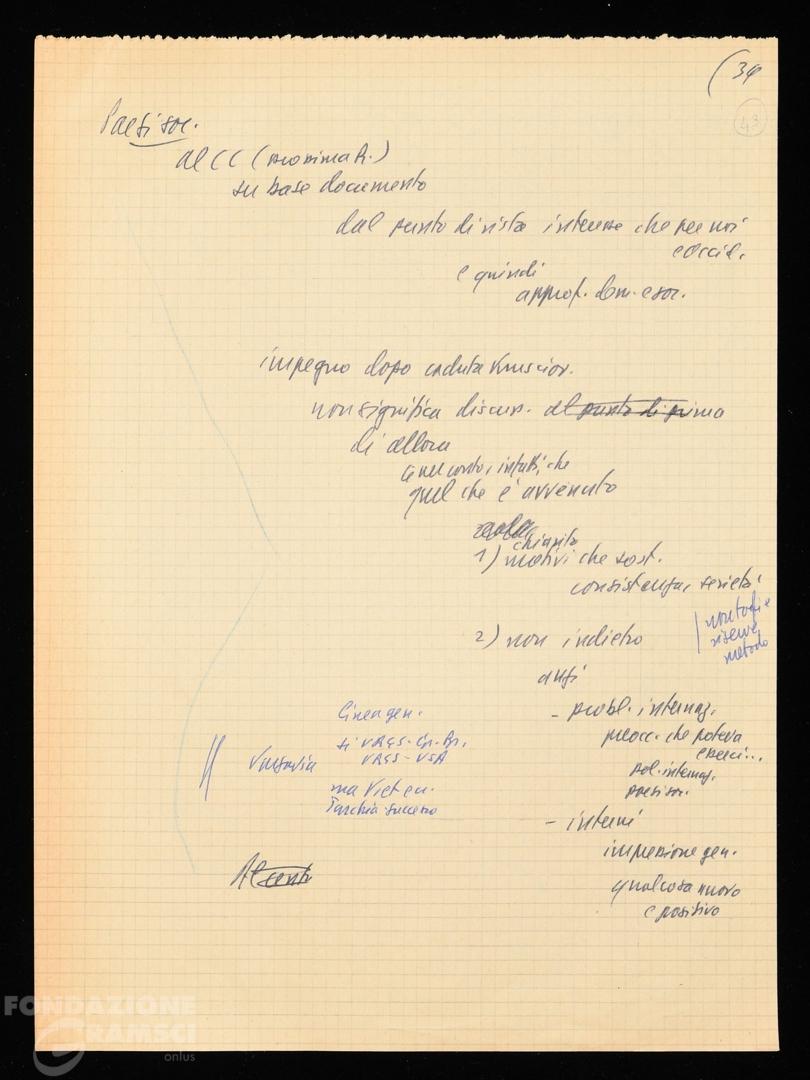 (34
43
Paesi soc.
al CC (prossima R.)
su base documento
dal punto di vista interesse che per noi
e occid.
e quindi
approf. dem. e soc.
impegno dopo caduta Krusciov.
non significa discus. al punto di prima
di allora
infatti, che
quel che è avvenuto
chiarito
1) motivi che sost.
consistenza, serietà
2) non indietro
non toglie
riserve
metodo
anzi
- probl. internaz.
preocc. che poteva
esserci...
pol. internaz.
paesi soc.
Linea gen.
si URSS-Gr. Br.
URSS-USA
Varsavia
ma Vietn.
Turchia successo
- interni
impressione gen.
qualcosa nuovo
e positivo
Al
FONDAZIONE
GRAMSCI
onlus